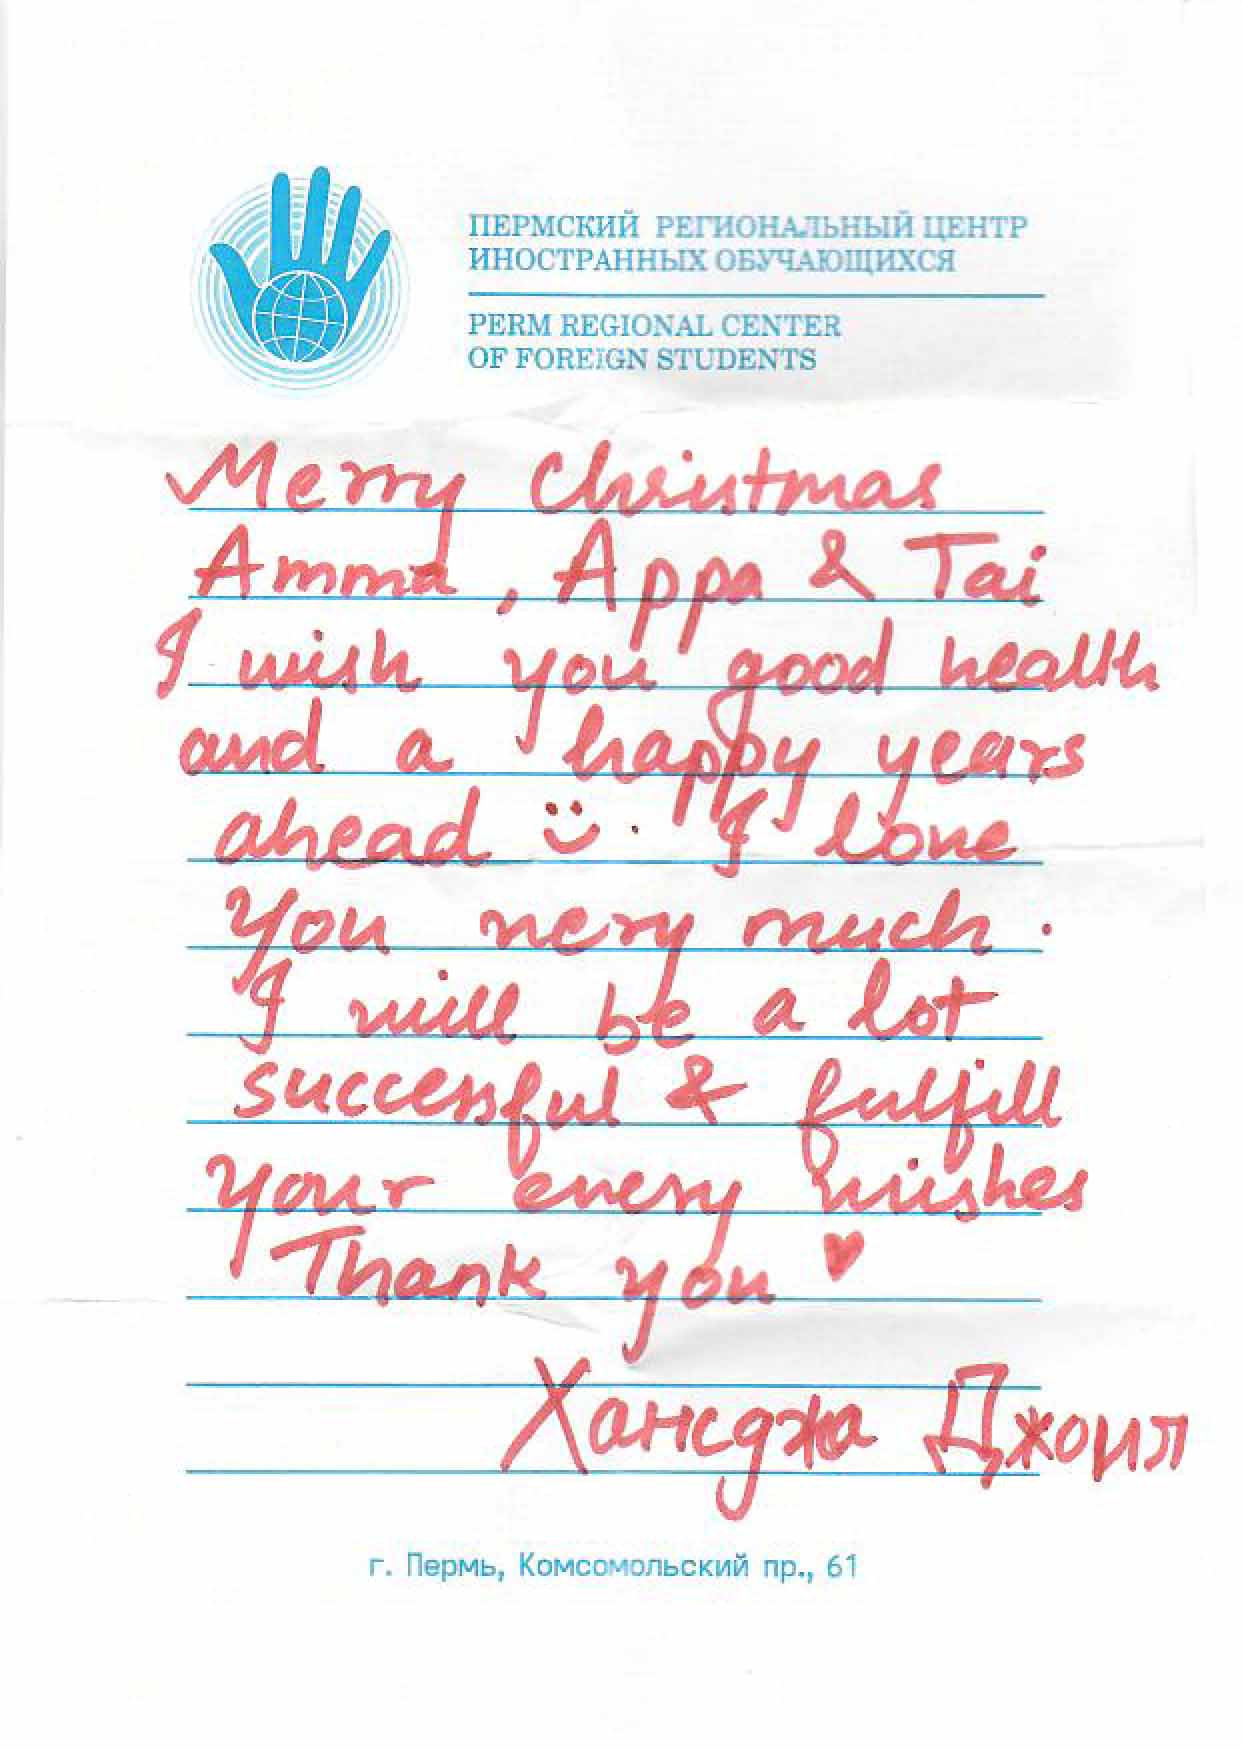 ПЕРМСКИЙ РЕГИОНАЛЬНЫЙ ЦЕНТР
ИНОСТРАННЫХ ОБУЧАЮЩИХСЯ
PERM REGIONAL CENTER
OF FOREIGN STUDENTS
Merry Christmas
Amma, Appa & Tai
I wish you good health
and a happy years
ahead :). I love
You very much.
I will be a lot
successful & fulfill
your every wishes
Thank you ♥
Хансджа Джоил
г. Пермь, Комсомольский пр., 61